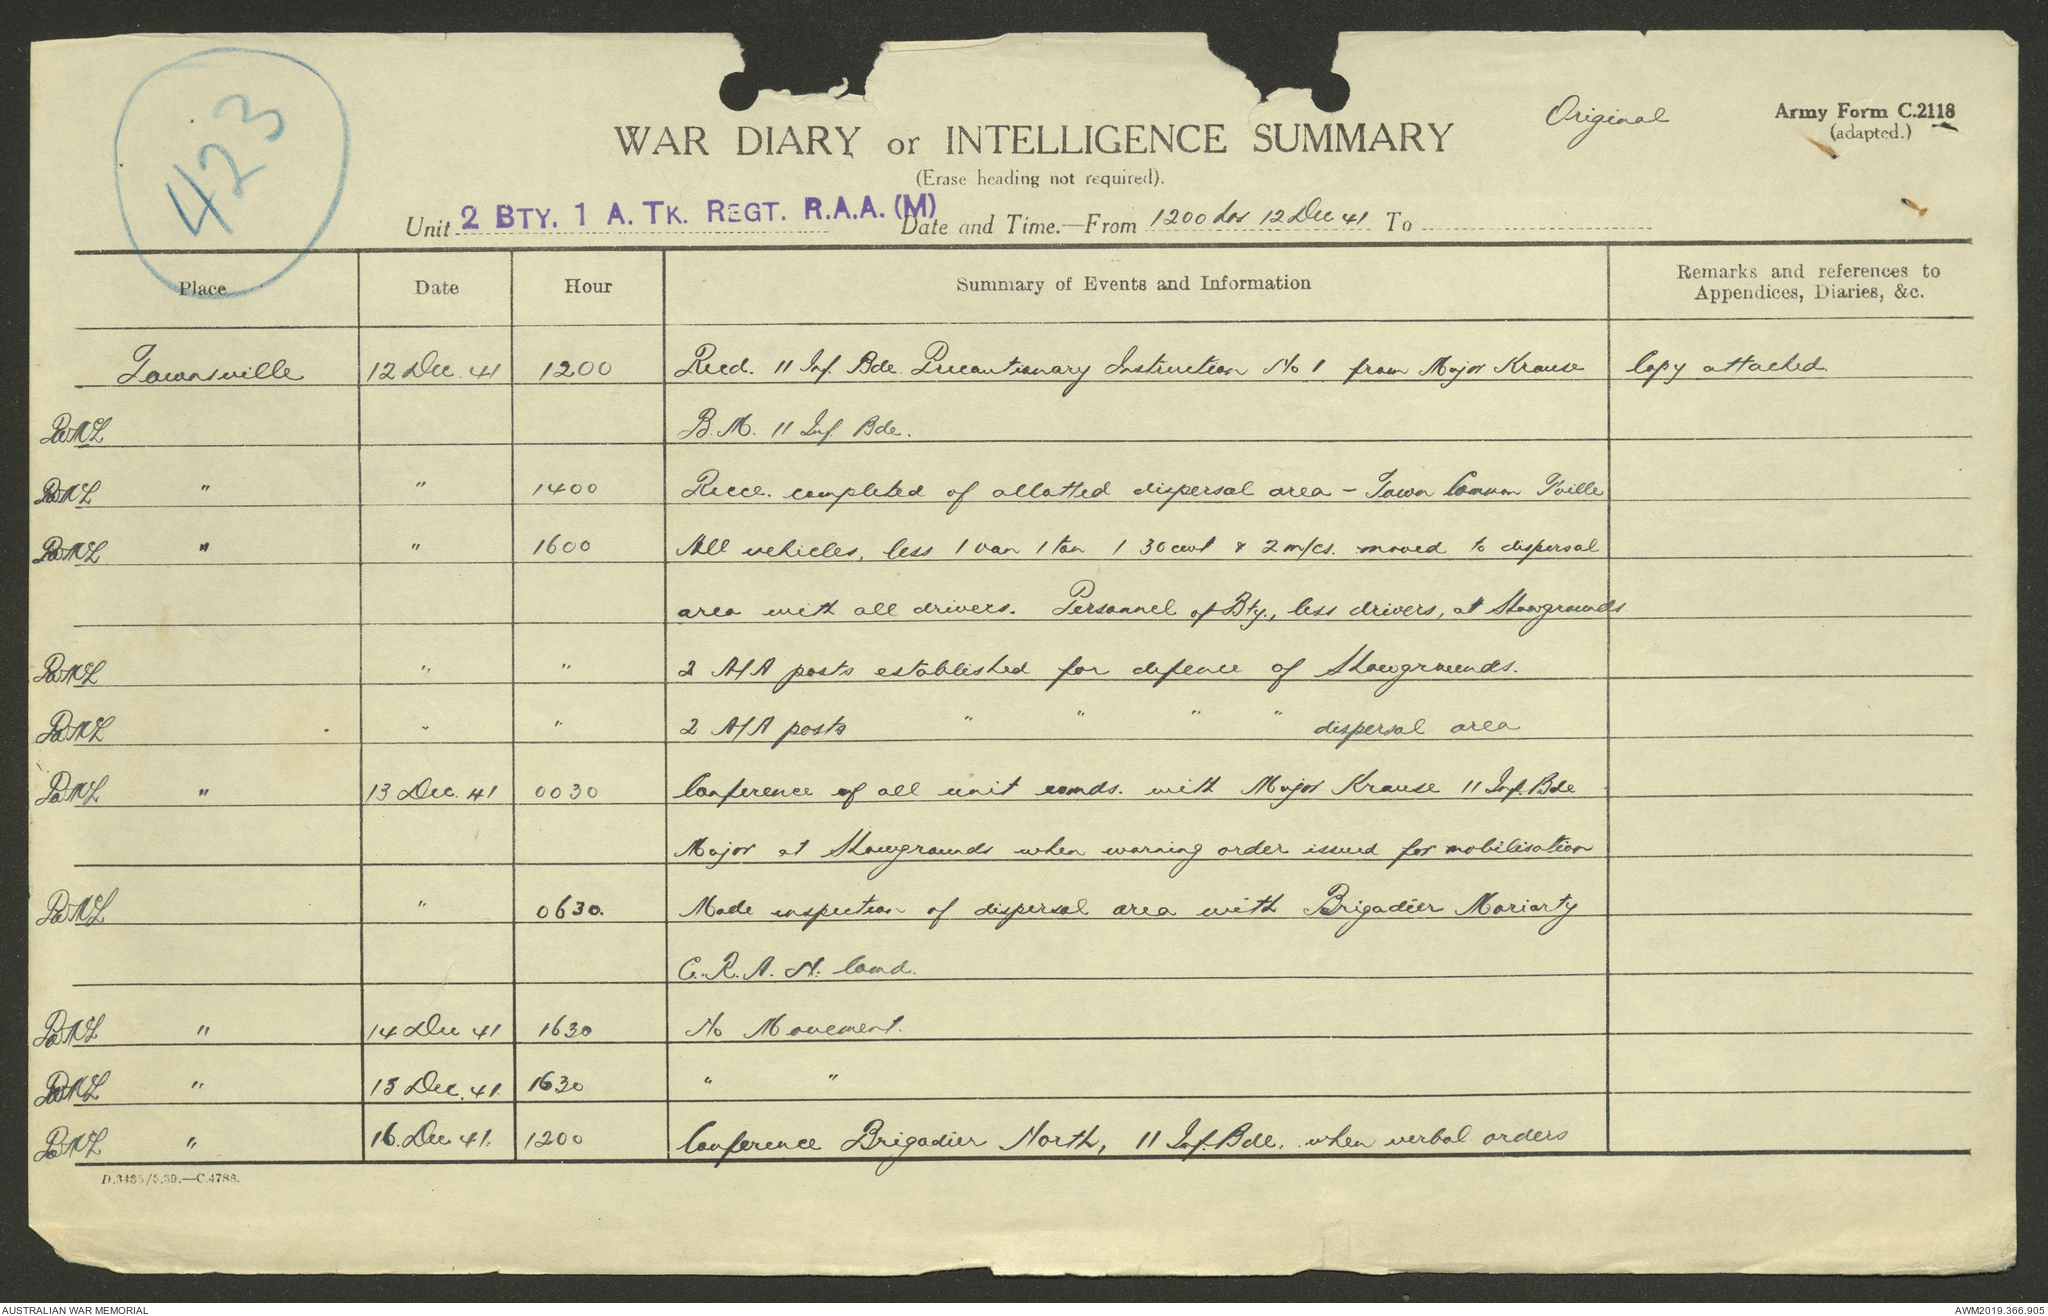 423
Original
Army Form C.2118
(adapted.)
WAR DIARY or INTELLIGENCE SUMMARY
(Erase heading not required).
Unit 2 BTY. 1 A. TK. REGT. R.A.A. (M) Date and Time.—From 1200 hrs 12 Dec 41 To
Place Date Hour Summary of Events and Information Remarks and references to Appendices, Diaries, &c.
Townsville 12 Dec. 41 1200 Recd. 11 Inf. Bde. Precautionary Instruction No 1 from Major Krause Copy attached.
B.M. 11 Inf. Bde.
" " 1400 Recce. completed of allotted dispersal area - Town Common T'ville
" " 1600 All vehicles, less 1 van 1 ton 1 30 cwt & 2 m/cs. moved to dispersal
area with all drivers. Personnel of Bty., less drivers, at Showgrounds
" " 2 A/A posts established for defence of Showgrounds.
" " 2 A/A posts " " " " dispersal area
" 13 Dec. 41 0030 Conference of all unit comds. with Major Krause 11 Inf. Bde
Major at Showgrounds when warning order issued for mobilisation
" 0630. Made inspection of dispersal area with Brigadier Moriarty
C.R.A. N. Comd.
" 14 Dec 41 1630 No Movement.
" 15 Dec. 41. 1630 " "
" 16. Dec 41. 1200 Conference Brigadier North, 11 Inf. Bde. when verbal orders
D.3435/5.39.—C.4788.
AUSTRALIAN WAR MEMORIAL
AWM2019.366.905